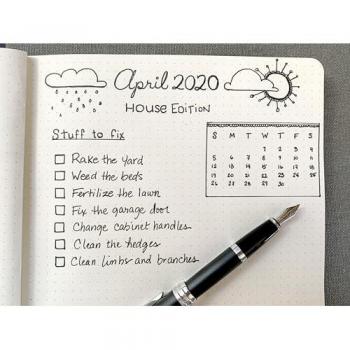 April 2020
House Edition
Stuff to fix
Rake the yard
Weed the beds
Fertilize the lawn
Fix the garage door
Change cabinet handles
Clean the hedges
Clean limbs and branches
S M T W T F S
1 2 3 4
5 6 7 8 9 10 11
12 13 14 15 16 17 18
19 20 21 22 23 24 25
26 27 28 29 30